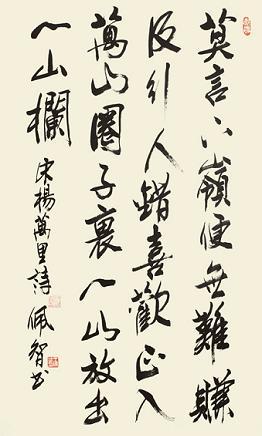 莫言下嶺便無難賺
得行人錯喜歡正入
萬山圈子裏一山放出
一山欄
宋楊萬里詩 佩智書